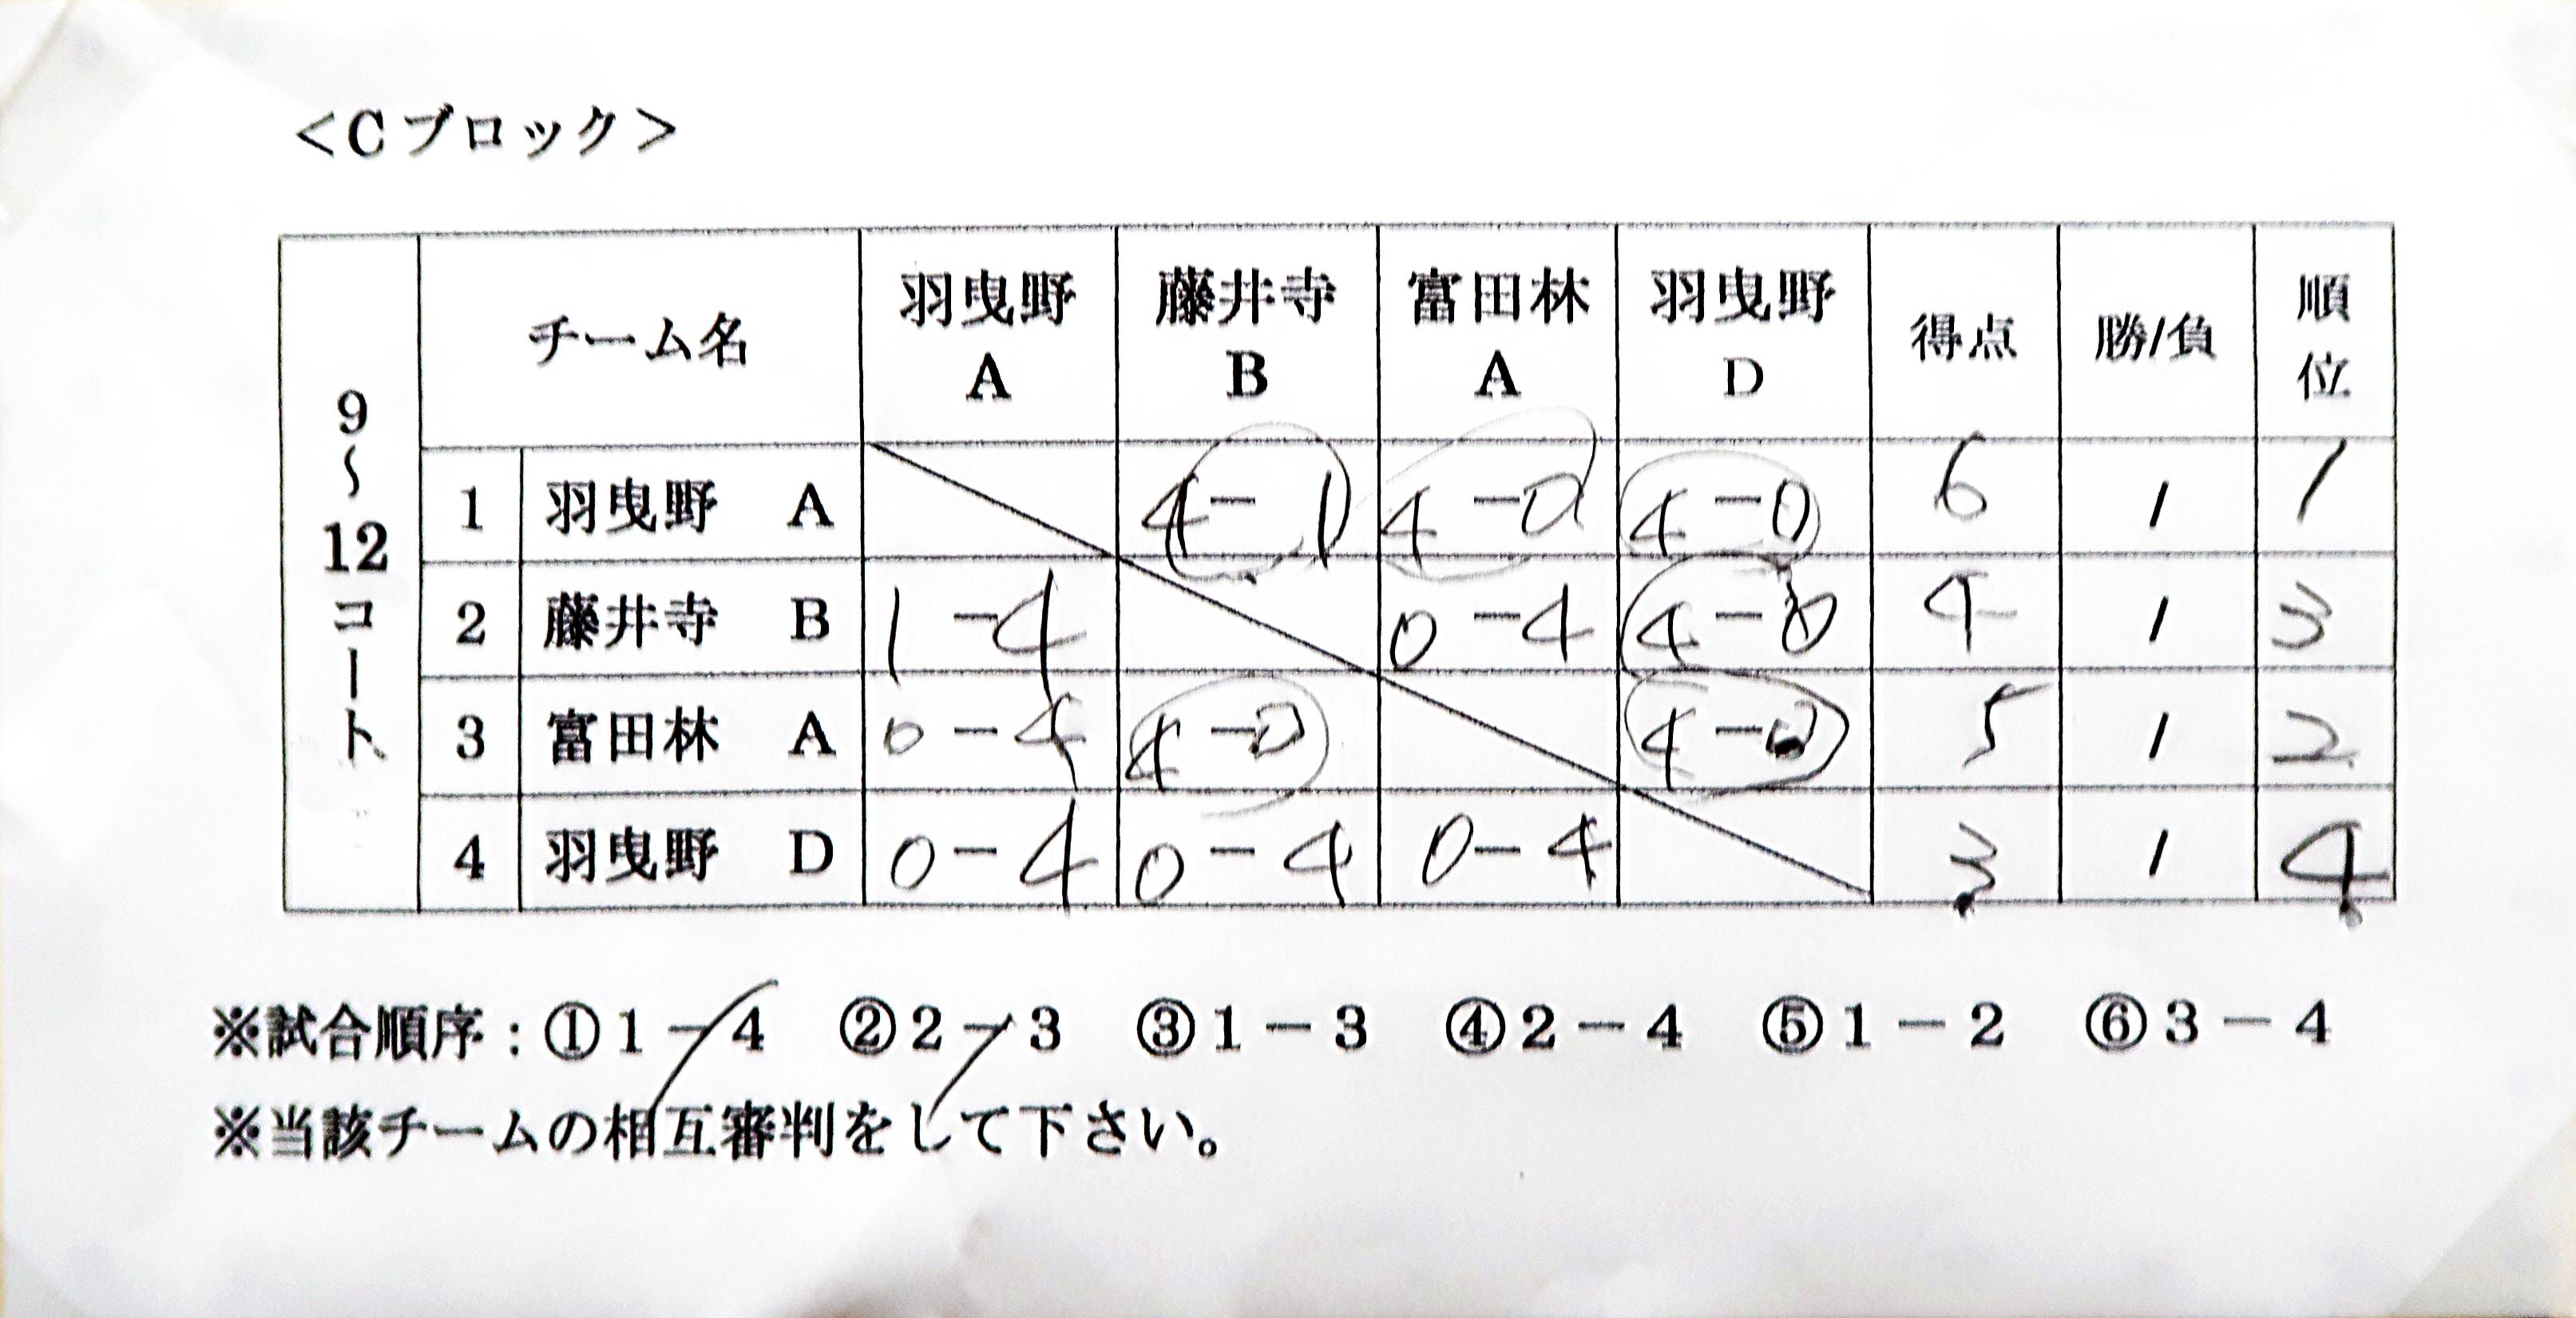 ＜Cブロック＞
9～12コート
チーム名 羽曳野 A 藤井寺 B 富田林 A 羽曳野 D 得点 勝/負 順位
1 羽曳野 A 4-1 4-0 4-0 6 / 1
2 藤井寺 B 1-4 0-4 4-0 4 / 3
3 富田林 A 0-4 4-0 4-0 5 / 2
4 羽曳野 D 0-4 0-4 0-4 3 / 4
※試合順序：①1－4 ②2－3 ③1－3 ④2－4 ⑤1－2 ⑥3－4
※当該チームの相互審判をして下さい。